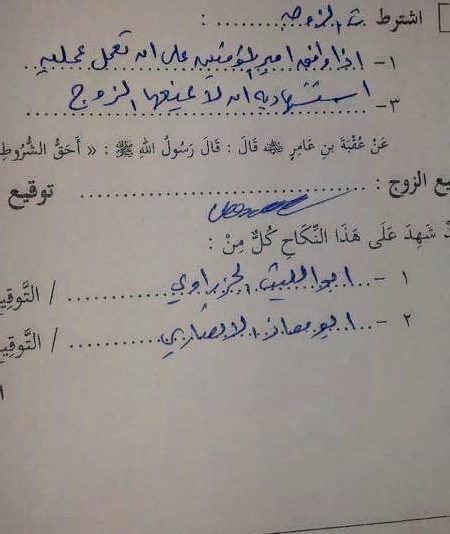 اشترطت الزوجه :
١- اذا وافق امير المؤمنين على ان تعمل عمليه
٣- استشهاديه ان لا يمنعها الزوج
عَنْ عُقْبَةَ بنِ عَامِرٍ ﷺ قَالَ : قَالَ رَسُولُ اللهِ ﷺ : « أَحَقُّ الشُّرُوطِ
يع الزوج : توقيع
شَهِدَ عَلَى هَذَا النِّكَاحِ كُلٌّ مِنْ :
١ - ابو الليث الجزراوي / التَّوقِيع
٢ - ابو معاذ الانصاري / التَّوقِيع